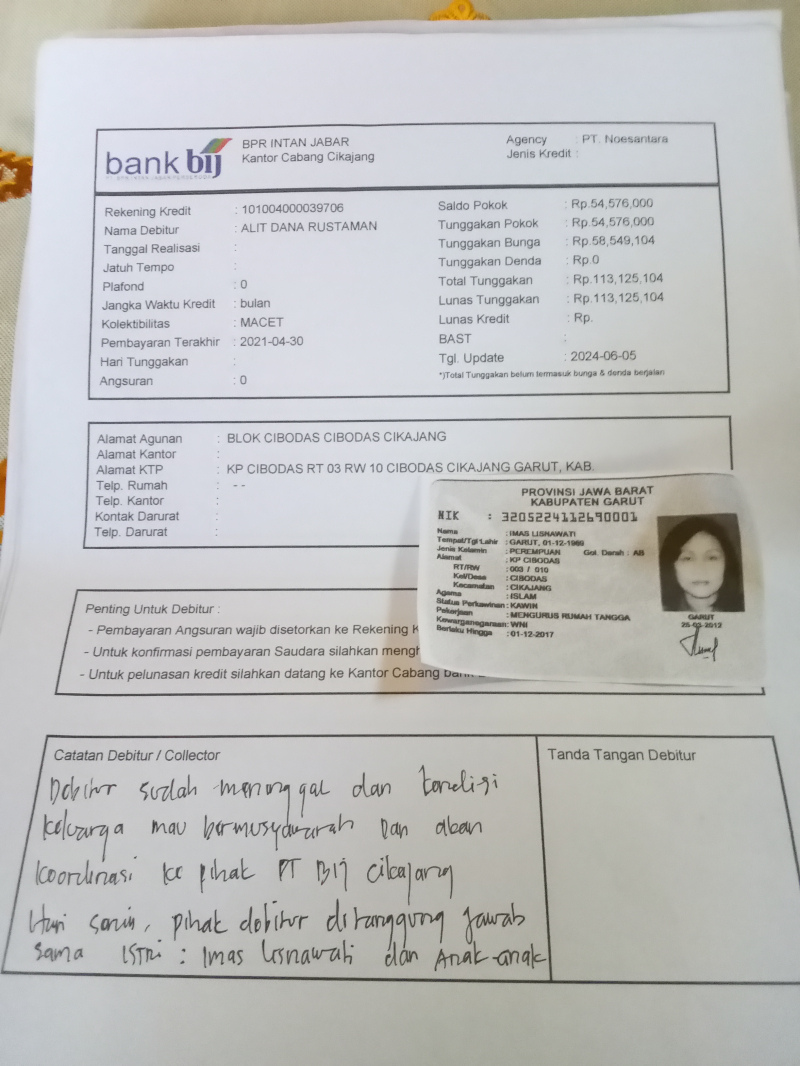 bank bij
BPR INTAN JABAR
Kantor Cabang Cikajang
Agency : PT. Noesantara
Jenis Kredit :
Rekening Kredit : 101004000039706
Nama Debitur : ALIT DANA RUSTAMAN
Tanggal Realisasi :
Jatuh Tempo :
Plafond : 0
Jangka Waktu Kredit : bulan
Kolektibilitas : MACET
Pembayaran Terakhir : 2021-04-30
Hari Tunggakan :
Angsuran : 0
Saldo Pokok : Rp.54,576,000
Tunggakan Pokok : Rp.54,576,000
Tunggakan Bunga : Rp.58,549,104
Tunggakan Denda : Rp.0
Total Tunggakan : Rp.113,125,104
Lunas Tunggakan : Rp.113,125,104
Lunas Kredit : Rp.
BAST :
Tgl. Update : 2024-06-05
*)Total Tunggakan belum termasuk bunga & denda berjalan
Alamat Agunan : BLOK CIBODAS CIBODAS CIKAJANG
Alamat Kantor :
Alamat KTP : KP CIBODAS RT 03 RW 10 CIBODAS CIKAJANG GARUT, KAB.
Telp. Rumah : - -
Telp. Kantor :
Kontak Darurat :
Telp. Darurat :
PROVINSI JAWA BARAT
KABUPATEN GARUT
NIK : 3205224112690001
Nama : IMAS LISNAWATI
Tempat/Tgl Lahir : GARUT, 01-12-1969
Jenis Kelamin : PEREMPUAN Gol. Darah : AB
Alamat : KP CIBODAS
RT/RW : 003 / 010
Kel/Desa : CIBODAS
Kecamatan : CIKAJANG
Agama : ISLAM
Status Perkawinan : KAWIN
Pekerjaan : MENGURUS RUMAH TANGGA
Kewarganegaraan : WNI
Berlaku Hingga : 01-12-2017
GARUT
25-05-2012
Penting Untuk Debitur :
- Pembayaran Angsuran wajib disetorkan ke Rekening K
- Untuk konfirmasi pembayaran Saudara silahkan mengh
- Untuk pelunasan kredit silahkan datang ke Kantor Cabang
Catatan Debitur / Collector
Debitur sudah meninggal dan kondisi
keluarga mau bermusyawarah dan akan
koordinasi ke pihak PT BIJ cikajang
Hari senin, pihak debitur ditanggung jawab
sama ISTRI : Imas Lisnawati dan Anak-anak
Tanda Tangan Debitur